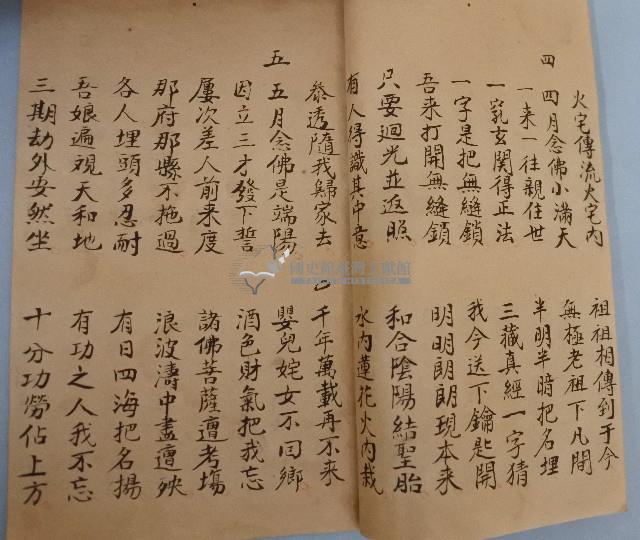 火宅傳流火宅內　祖祖相傳到于今
四　四月念佛小滿天　無極老祖下凡間
一来一往親住世　半明半暗把名埋
一竅玄関得正法　三藏真經一字猜
一字是把無縫鎖　我今送下鑰匙開
吾来打開無縫鎖　明明朗朗現本来
只要廻光並返照　和合陰陽結聖胎
有人得識其中意　水內蓮花火內栽
叅透隨我歸家去　千年萬載再不来
五　五月念佛是端陽　嬰兒姹女不回鄉
因立三才發下誓　酒色財氣把我忘
屢次差人前来度　諸佛菩薩遭考場
那府那縣不拖過　浪波濤中盡遭殃
各人埋頭多忍耐　有日四海把名揚
吾娘遍視天和地　有功之人我不忘
三期劫外安然坐　十分功勞佔上方
國史館臺灣文獻館